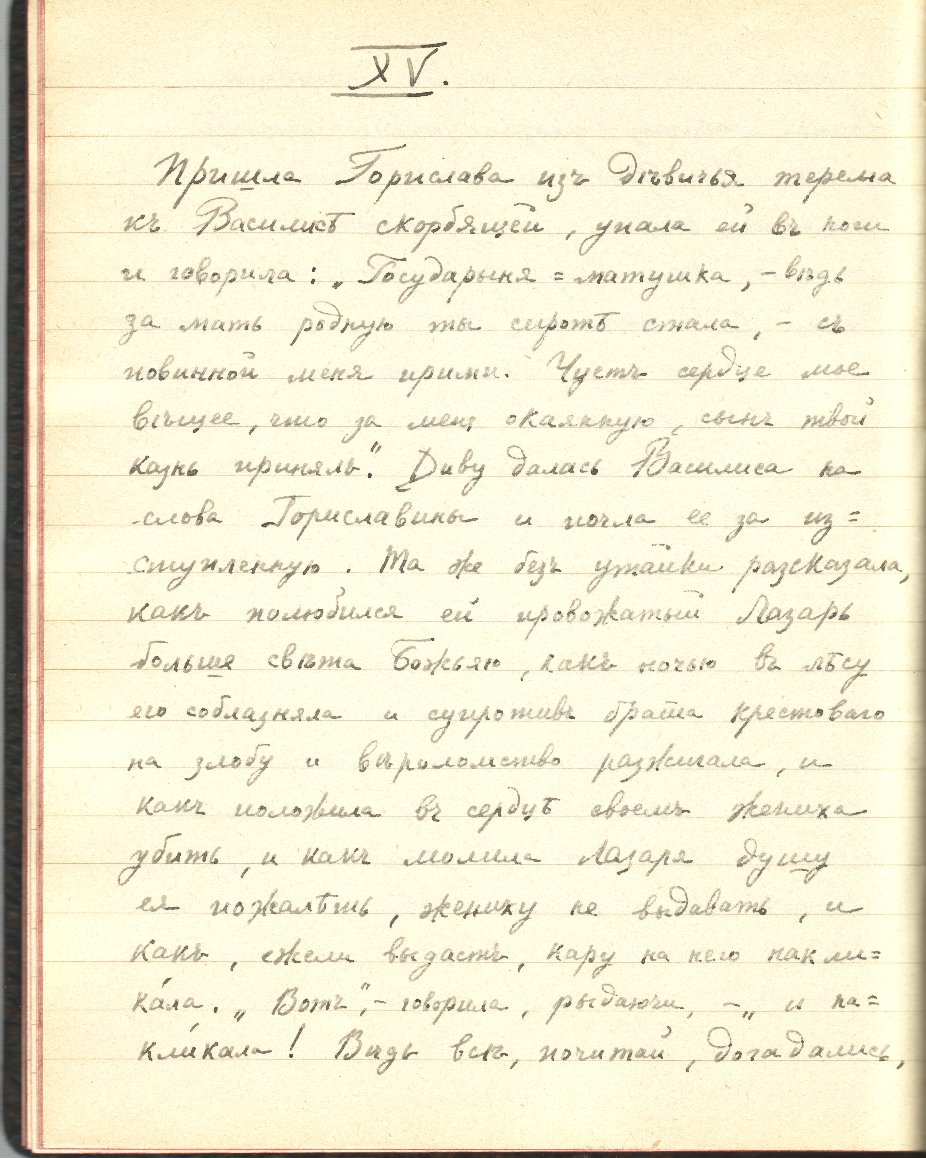 XV.
Пришла Горислава изъ дѣвичья терема
къ Василисѣ скорбящей, упала ей въ ноги
и говорила: „Государыня=матушка, – вѣдь
за мать родную ты сиротѣ стала, – съ
повинной меня прими. Чуетъ сердце мое
вѣщее, что за меня окаянную, сынъ твой
казнь принялъ“. Диву далась Василиса на
слова Гориславины и почла ее за из=
ступленную. Та же безъ утайки разсказала,
какъ полюбился ей провожатый Лазарь
больше свѣта Божьяю, какъ ночью въ лѣсу
его соблазняла и супротивъ брата крестоваго
на злобу и вѣроломство разжигала, и
какъ положила въ сердцѣ своемъ жениха
убить, и какъ молила Лазаря душу
ея пожалѣть, жениху не выдавать, и
какъ, ежели выдастъ, кару на него накли=
ка́ла. „Вотъ“, – говорила, рыдаючи, – „и на=
кли́кала! Вѣдь всѣ, почитай, догадались,